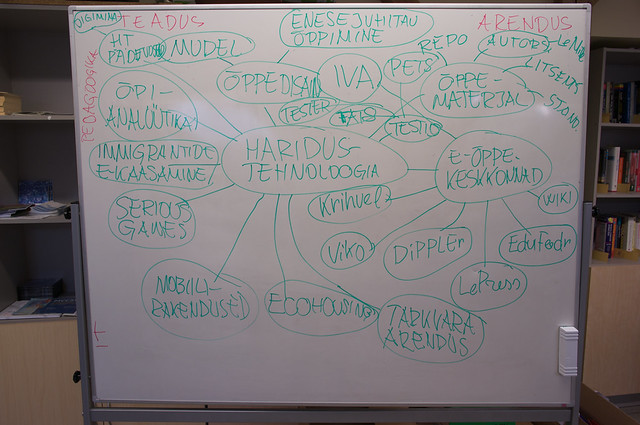 DIGIMINA
TEADUS
ENESEJUHITAU
ÕPPIMINE
ARENDUS
HT
PÄDEVUSED
MUDEL
REPO
AUTORS.
LeMill
PEDAGOOGIKA
ÕPPEDISAIN
IVA
PETS
ÕPPE-
MATERJAL
LITSENTS
STAND.
ÕPI-
ANALÜÜTIKA
TESTER
TATS
TESTID
IMMIGRANTIDE
E-KAASAMINE
HARIDUS-
TEHNOLOOGIA
E-ÕPPE-
KESKKONNAD
SERIOUS
GAMES
Krihvel
WIKI
Viko
DIPPLEr
EduFeedr
LePress
MOBIILI-
RAKENDUSED
ECOHOUSING
TARKVARA
ARENDUS